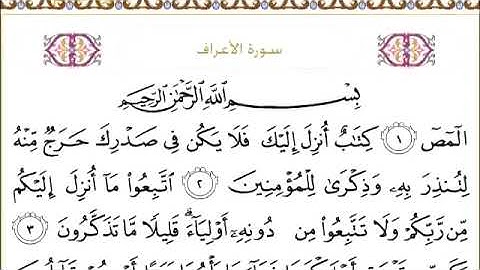 سورة الأعراف
بِسْمِ اللَّهِ الرَّحْمَٰنِ الرَّحِيمِ
الٓمٓصٓ ١ كِتَٰبٌ أُنزِلَ إِلَيْكَ فَلَا يَكُن فِى صَدْرِكَ حَرَجٌ مِّنْهُ
لِتُنذِرَ بِهِۦ وَذِكْرَىٰ لِلْمُؤْمِنِينَ ٢ اتَّبِعُوا۟ مَآ أُنزِلَ إِلَيْكُم
مِّن رَّبِّكُمْ وَلَا تَتَّبِعُوا۟ مِن دُونِهِۦٓ أَوْلِيَآءَ ۗ قَلِيلًا مَّا تَذَكَّرُونَ ٣